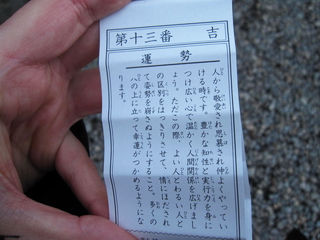 第十三番 吉
運勢
人から敬愛され思慕され仲よくやってい
ける時です。豊かな知性と実行力を身に
つけ広い心で温かく人間関係を広げまし
ょう。ただこの際、よい人とわるい人と
の区別をはっきりさせて、情にほだされ
て姿勢を崩さぬようにすること。多くの
人の上に立って幸運がつかめるようにな
ります。